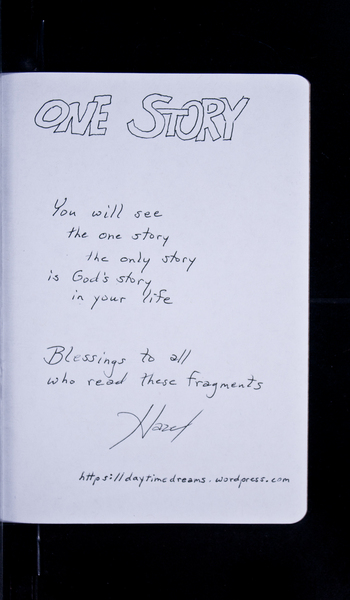 ONE STORY
You will see
the one story
the only story
is God's story
in your life
Blessings to all
who read these fragments
Hazel
https://daytimedreams.wordpress.com